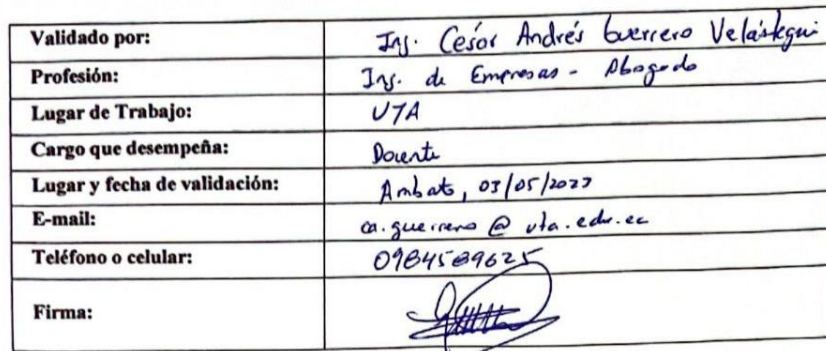 Validado por: Ing. César Andrés Guerrero Velástegui
Profesión: Ing. de Empresas - Abogado
Lugar de Trabajo: UTA
Cargo que desempeña: Docente
Lugar y fecha de validación: Ambato, 03/05/2023
E-mail: ca.guerrero @ uta.edu.ec
Teléfono o celular: 0984589625
Firma: